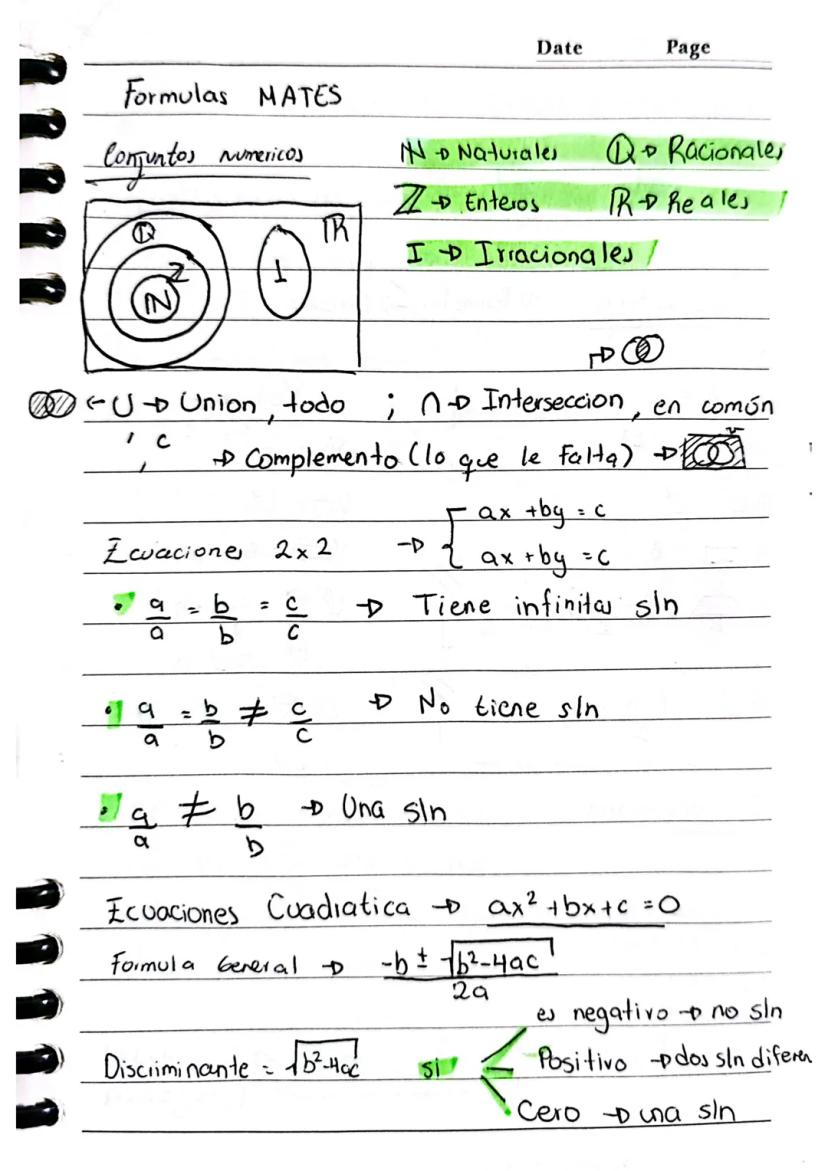 Date Page
Formulas MATES
Conjuntos numericos
ℕ → Naturales ℚ → Racionales
ℤ → Enteros ℝ → Reales
I → Irracionales
ℚ ℤ ℕ I ℝ
← ∪ → Union, todo ; ∩ → Interseccion, en común
', c
→ Complemento (lo que le falta) →
Ecuaciones 2x2 → { ax + by = c
ax + by = c
• a/a = b/b = c/c → Tiene infinitas sln
• a/a = b/b ≠ c/c → No tiene sln
• a/a ≠ b/b → Una sln
Ecuaciones Cuadratica → ax² + bx + c = 0
Formula General → -b ± √b²-4ac / 2a
es negativo → no sln
Discriminante = √b²-4ac si Positivo → dos sln diferen
Cero → una sln